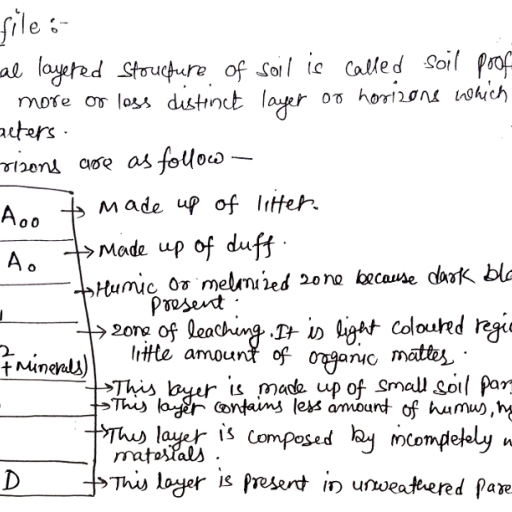 file :-
al layered structure of soil is called soil prof
more or less distinct layer or horizons which
acters.
rizons are as follow —
A00 → Made up of litter.
A0 → Made up of duff.
→ Humic or melanized zone because dark bla
present.
→ zone of leaching. It is light coloured regi
2
little amount of organic matter.
+ Minerals)
→ This layer is made up of small soil par
→ This layer contains less amount of humus,
→ This layer is composed by incompletely w
materials.
D → This layer is present in unweathered pare